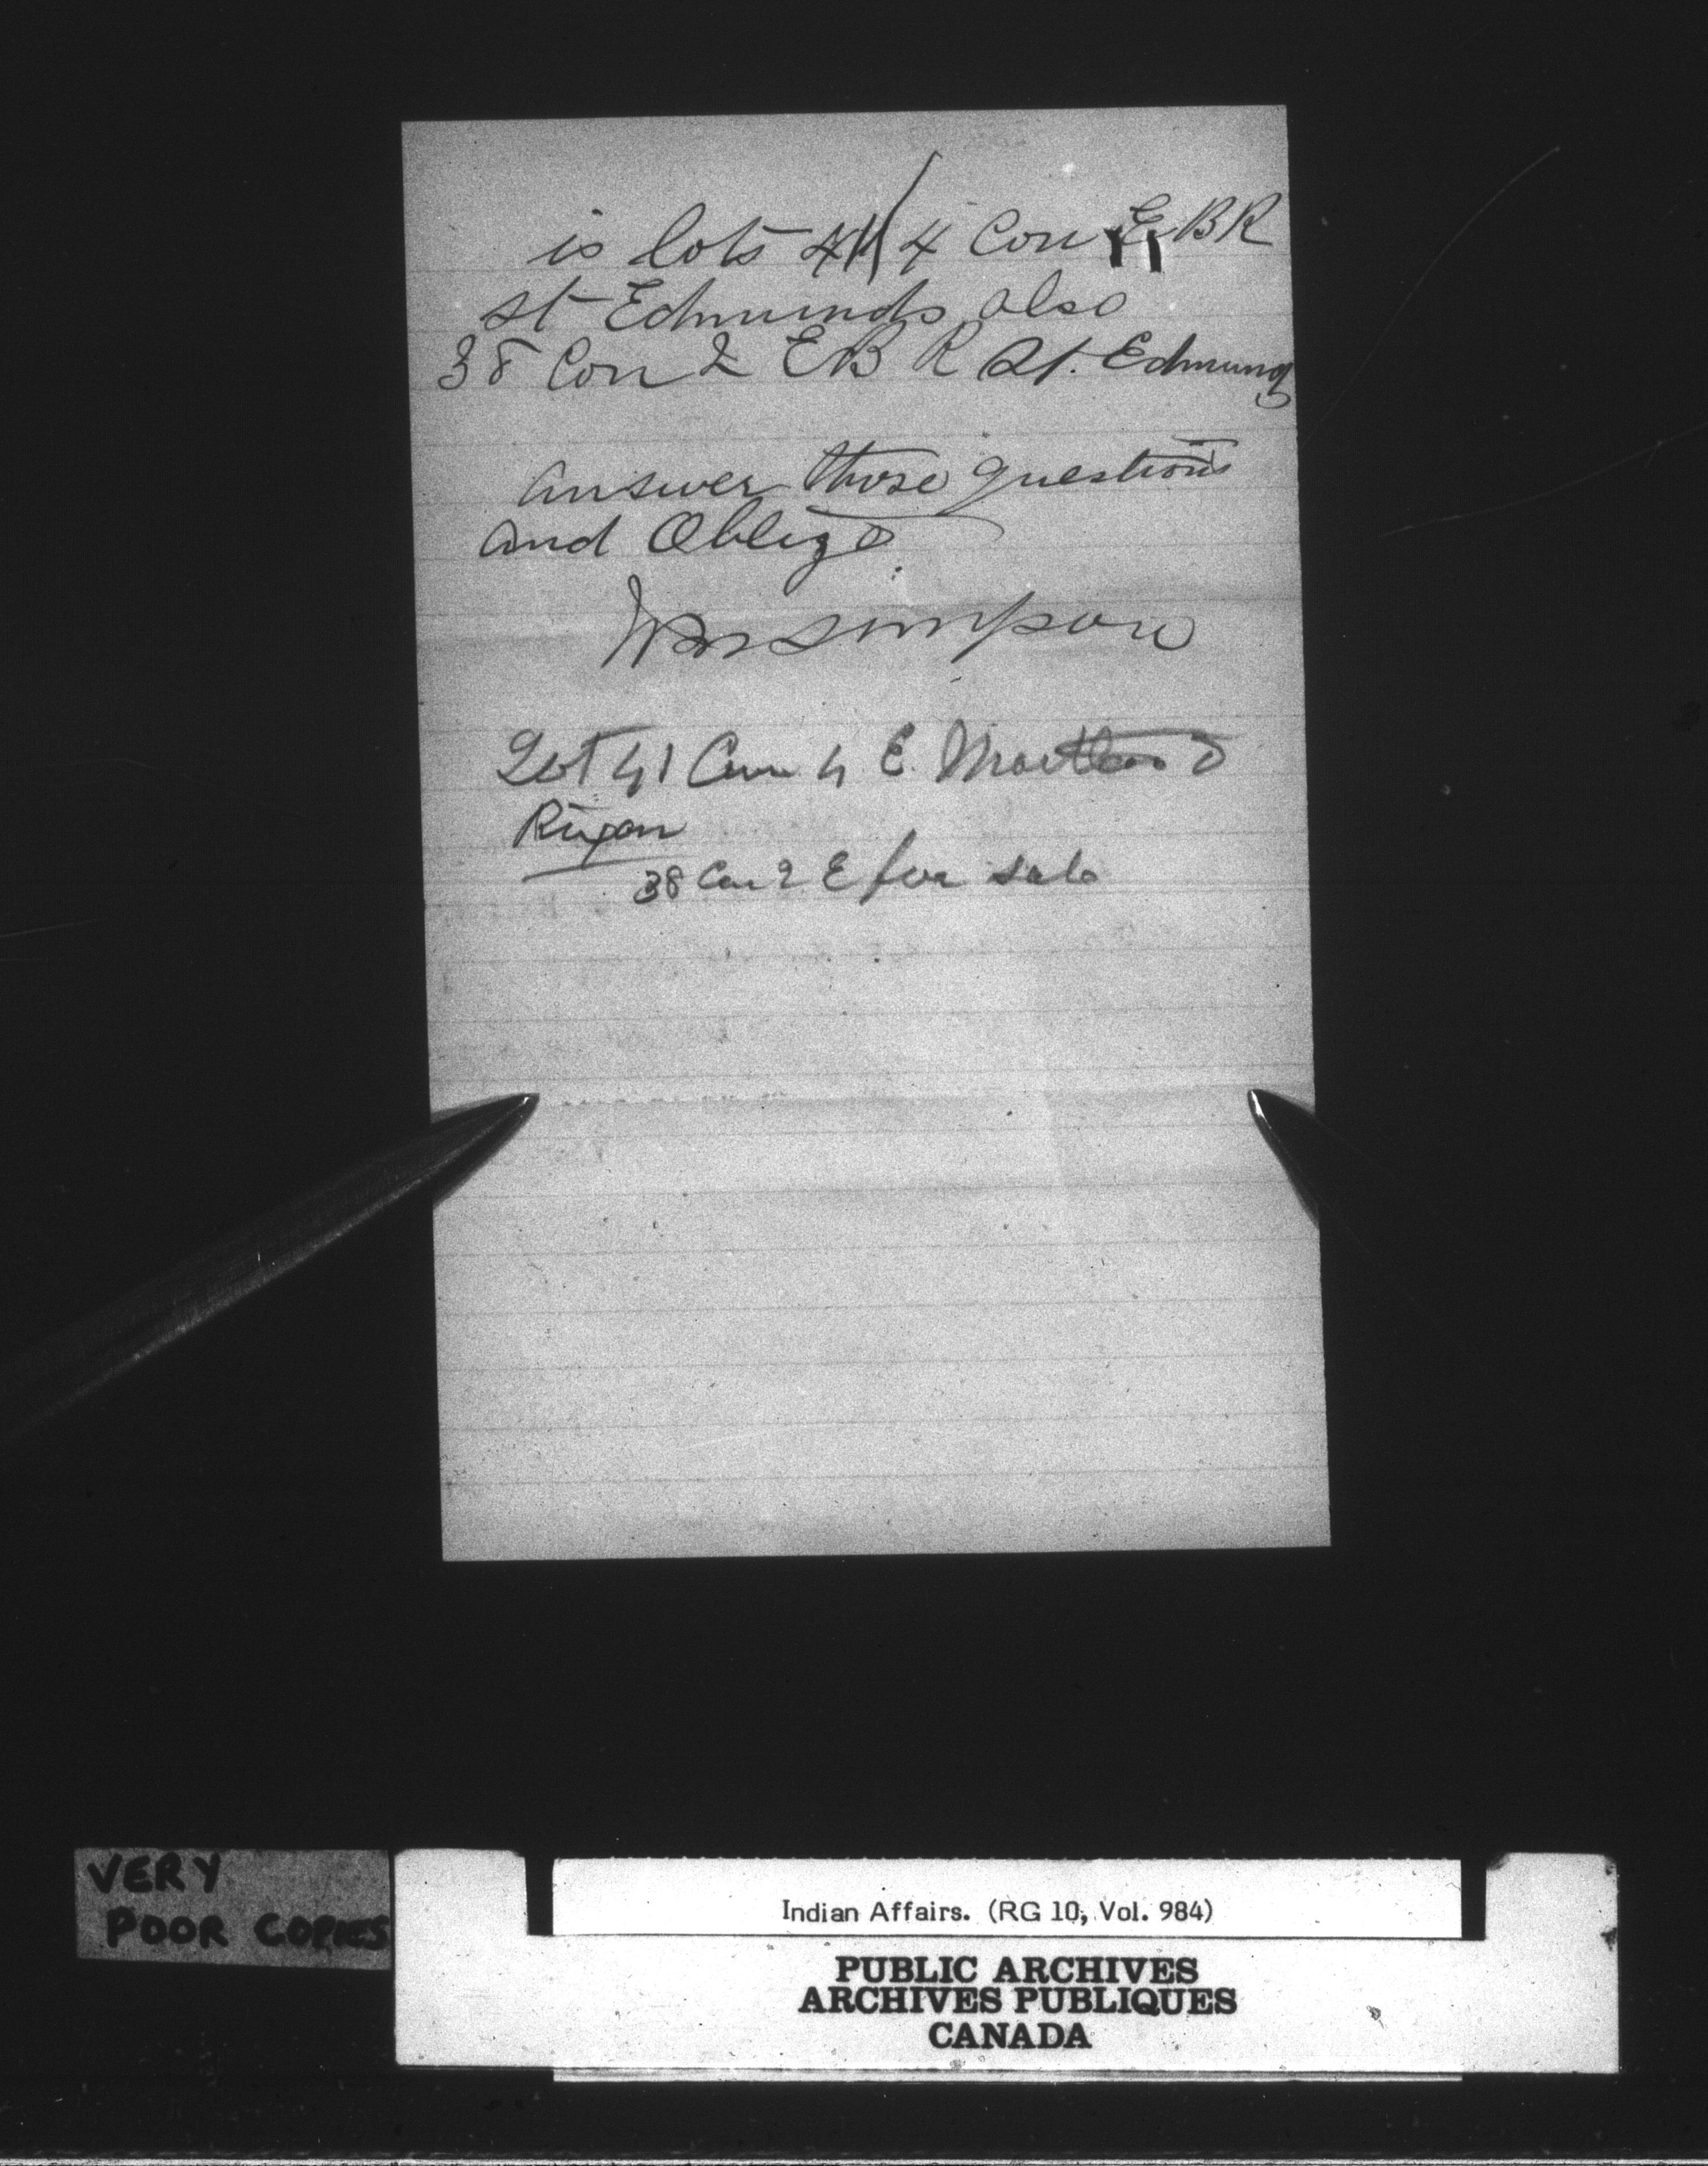 is lots 41 / 4 Con E BR
st Edmunds also
38 Con 2 E B R St. Edmunds
answer those questions
and Oblige
Wm Simpson
Lot 41 Con 4 E. Maitland
Rixon
38 Con 2 E for sale
VERY
POOR COPIES
Indian Affairs. (RG 10, Vol. 984)
PUBLIC ARCHIVES
ARCHIVES PUBLIQUES
CANADA